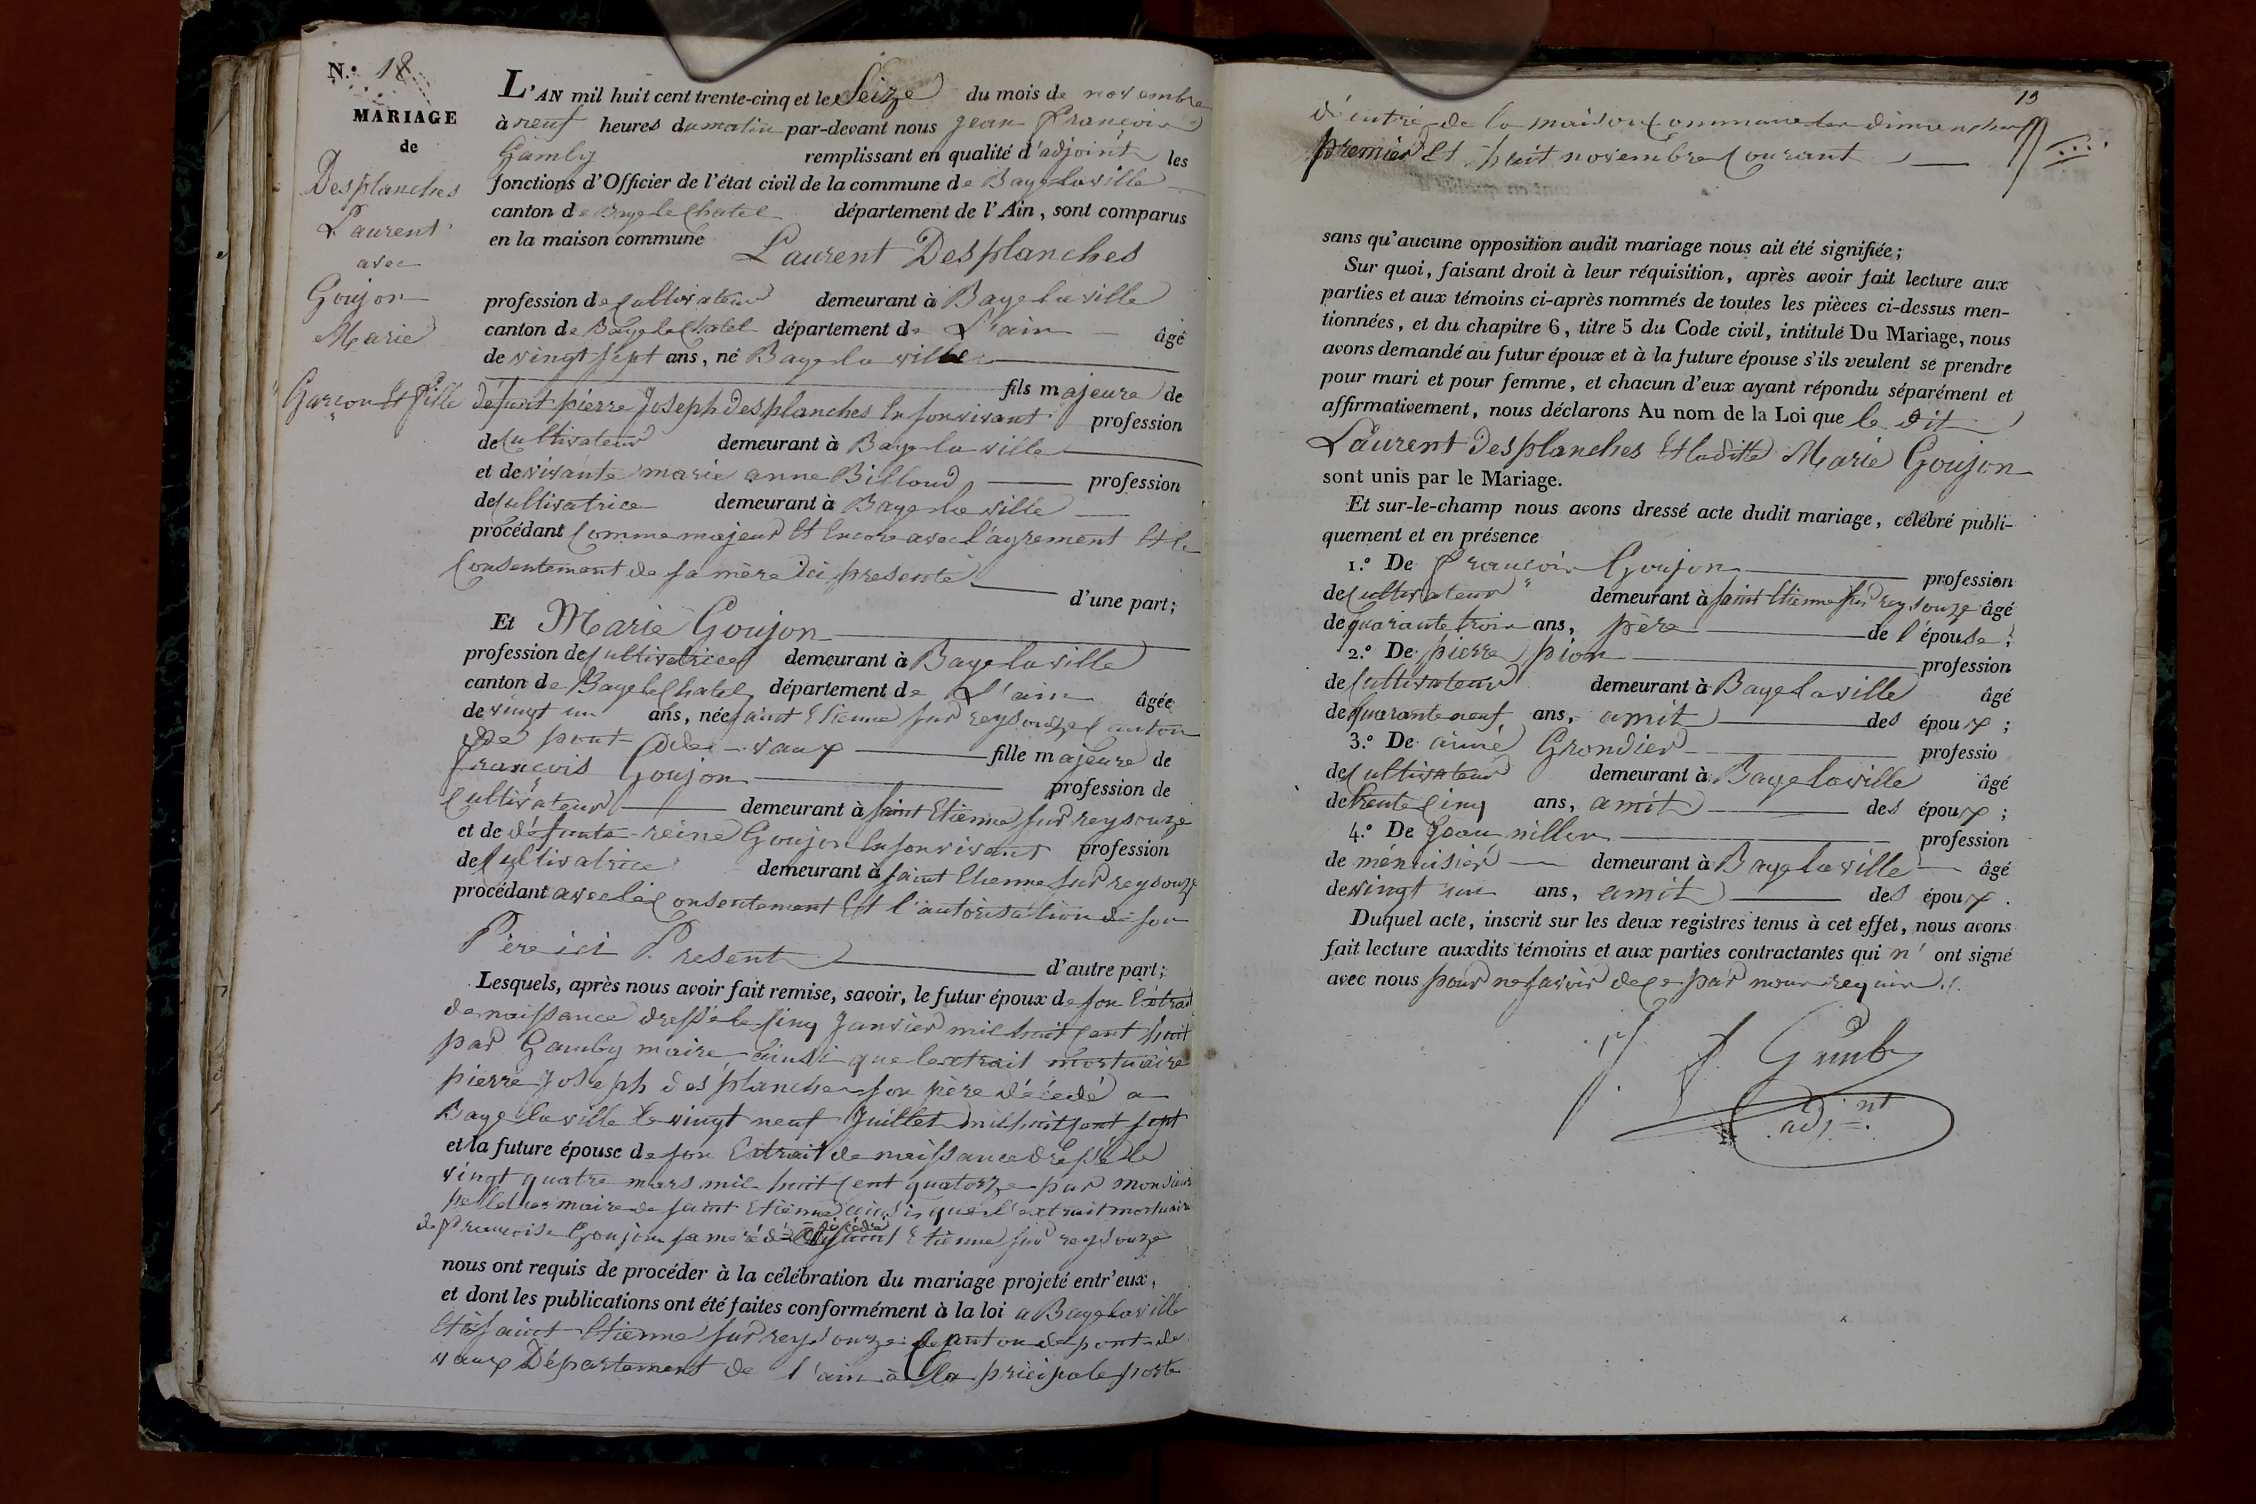 N.º 18
MARIAGE
de
Desplanches
Laurent
avec
Goujon
Marie
Garçon Et fille
L'AN mil huit cent trente-cinq et le Seize du mois de novembre
à neuf heures du matin par-devant nous jean François
Gamby remplissant en qualité d'adjoint les
fonctions d'Officier de l'état civil de la commune de Bage la ville
canton de Bage le Chatel département de l'Ain, sont comparus
en la maison commune
Laurent Desplanches
profession de Cultivateur demeurant à Bage la ville
canton de Bage le Chatel département de L'ain âgé
de vingt sept ans, né Bage la ville
fils majeure de
défunt pierre Joseph Desplanches En son vivant profession
de Cultivateur demeurant à Bage la ville
et de vivante marie anne Billoud profession
de Cultivatrice demeurant à Bage la ville
procédant Comme majeur Et Encore avec l'agrement Et le
Consentement de sa mère ici presente
d'une part;
Et Marie Goujon
profession de Cultivatrice demeurant à Bage la ville
canton de Bage le Chatel département de L'ain âgée
de vingt un ans, née saint Etienne sur reysouze Canton
de pont de vaux fille majeure de
François Goujon profession de
Cultivateur demeurant à saint Etienne sur reysouze
et de défunte reine Goujon En son vivant profession
de Cultivatrice demeurant à saint Etienne sur reysouze
procédant avec le Consentement Et l'autorisation de son
Père ici Present d'autre part;
Lesquels, après nous avoir fait remise, savoir, le futur époux de son Extrait
de naissance dressé le Cinq Janvier mil huit Cent huit
par Gamby maire ainsi que lextrait mortuaire
pierre Joseph desplanches son père décédé a
Bage la ville le vingt neuf Juillet mil huit Cent sept
et la future épouse de son Extrait de naissance dressé le
vingt quatre mars mil huit Cent quatorze par monsieur
maire de saint Etienne ainsi que l'extrait mortuaire
de françoise Goujon sa mere décédé saint Etienne sur reysouze
nous ont requis de procéder à la célébration du mariage projeté entr'eux,
et dont les publications ont été faites conformément à la loi a Bage la ville
Et à saint Etienne sur reysouze Canton de pont de
vaux Département de l'ain à la pricipale porte
13
d'entré de la maison Commune les dimanches
premier Et huit novembre Courant
sans qu'aucune opposition audit mariage nous ait été signifiée;
Sur quoi, faisant droit à leur réquisition, après avoir fait lecture aux
parties et aux témoins ci-après nommés de toutes les pièces ci-dessus men-
tionnées, et du chapitre 6, titre 5 du Code civil, intitulé Du Mariage, nous
avons demandé au futur époux et à la future épouse s'ils veulent se prendre
pour mari et pour femme, et chacun d'eux ayant répondu séparément et
affirmativement, nous déclarons Au nom de la Loi que le dit
Laurent Desplanches Et la ditte Marie Goujon
sont unis par le Mariage.
Et sur-le-champ nous avons dressé acte dudit mariage, célébré publi-
quement et en présence
1.º De François Goujon profession
de Cultivateur demeurant à saint Etienne sur reysouze âgé
de quarante trois ans, père de l'épouse;
2.º De pierre pion profession
de Cultivateur demeurant à Bage la ville âgé
de quarante neuf ans, amit des époux;
3.º De aimé Grondier professio
de Cultivateur demeurant à Bage la ville âgé
de trente Cinq ans, amit des époux;
4.º De Jean profession
de ménuisier demeurant à Bage la ville âgé
de vingt ans, amit des époux.
Duquel acte, inscrit sur les deux registres tenus à cet effet, nous avons
fait lecture auxdits témoins et aux parties contractantes qui n'ont signé
avec nous pour ne savoir de Ce par nous requis
Gamby
adj.nt